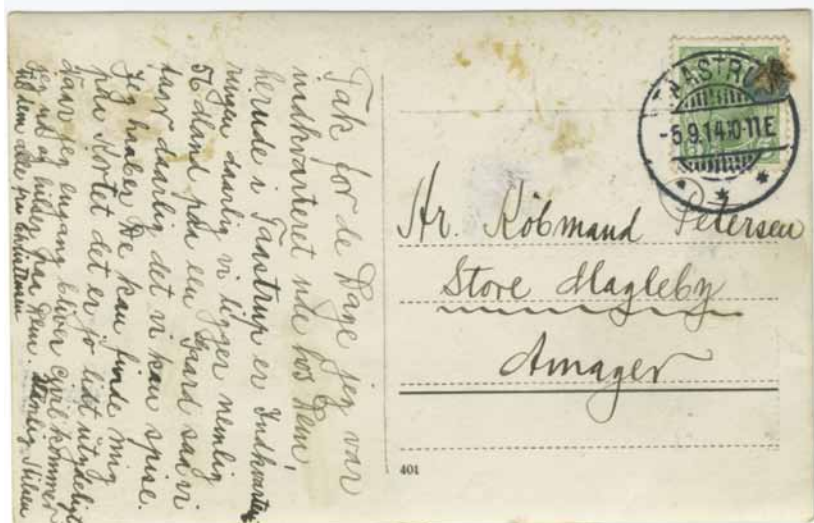 Tak for de Dage jeg var
indkvarteret ude hos Dem
herude i Taastrup er Indkvarte-
ringen daarlig vi ligger nemlig
56 Mand paa een Gaard saa vi
tager daarlig det vi kan spise.
Jeg haaber De kan finde mig
paa Kortet det er jo lidt utydeligt
Naar jeg engang bliver Civil kommer
jeg ud og hilser paa Dem. Venlig Hilsen
til dem alle fra Christensen
TAASTRUP
-5.9.14 10-11E
Hr. Købmand Petersen
Store Magleby
Amager
401